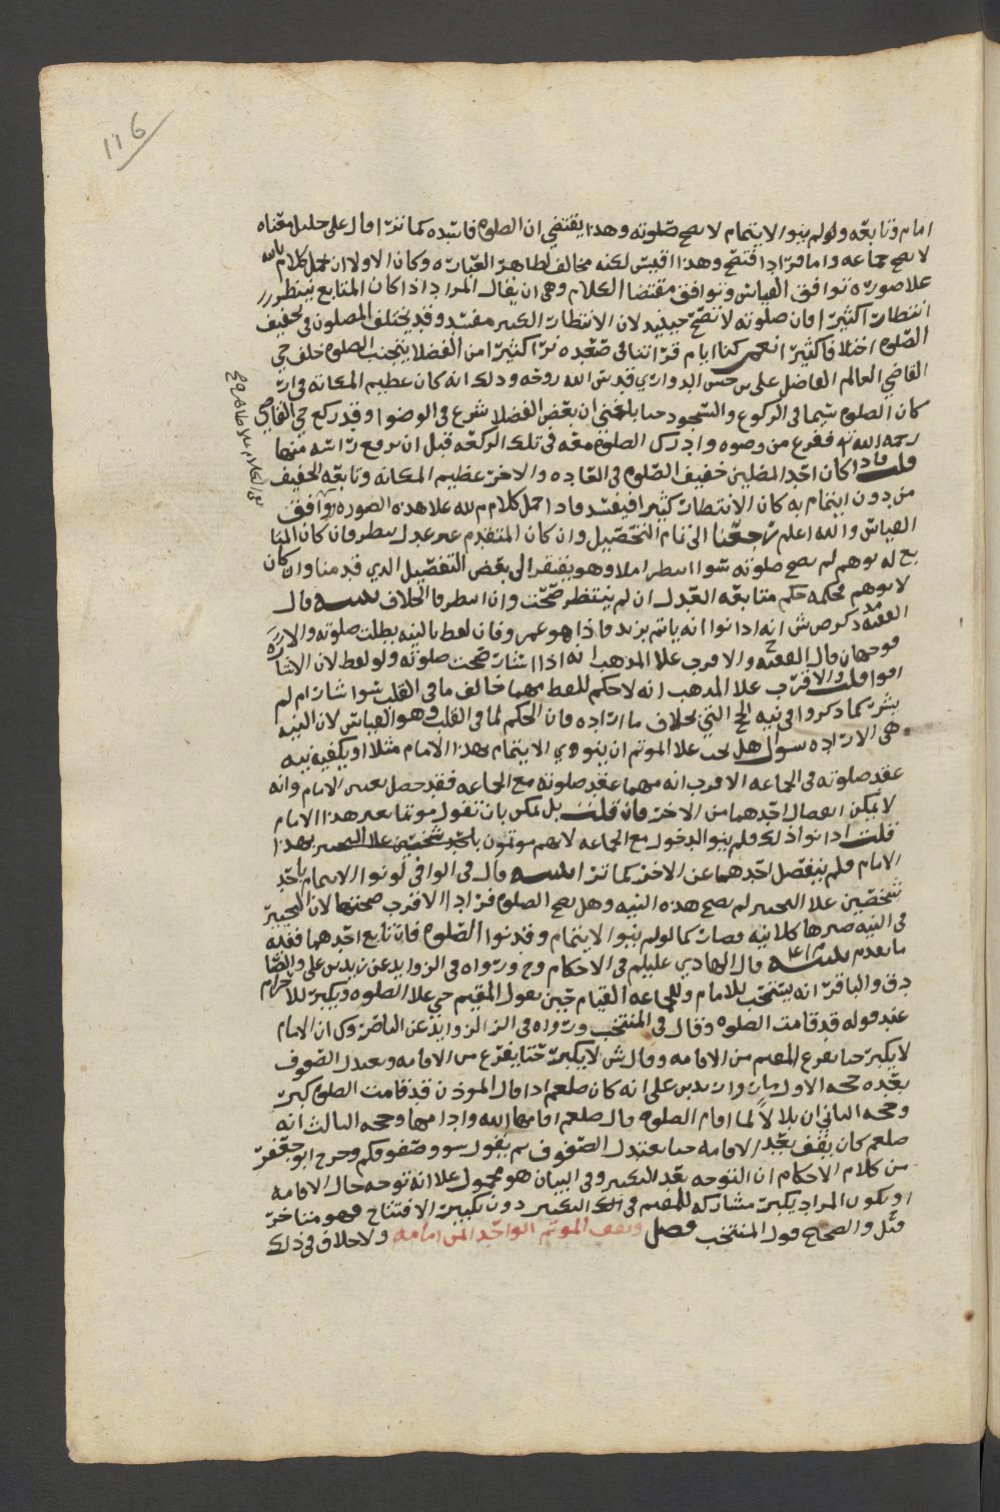 116
امام وتابعه ولو لم ينو الايتمام لا تصح صلوته وهذا يقتضي ان الصلوة فاسده كما ترا قال على خليل معناه
لا تصح جماعه واما فرادا فتصح وهذا اقيس لكنه مخالف لظاهر العباره وكان الاولا ان يحمل كلام بالله
علا صوره توافق القياس وتوافق مقتضا الكلام وهي ان يقال المراد اذا كان المتابع ينتظر
انتظارا كثيرا فان صلوته لا تصح حينيذ لان الانتظار الكثير مفسد وقد يختلف المصلون في تخفيف
الصلوة اختلافا كثيرا نعم كنا ايام قراتنا في صعده نرا كثيرا من الفضلا يتجنب الصلوة خلف حي
القاضي العالم الفاضل على بن حسن الدواري قدس الله روحه وذلك انه كان عظيم المكانه في ار
كان الصلوة سيما في الركوع والسجود حتا بلغني ان بعض الفضلا شرع في الوضوا وقد ركع حي القاضي
رحمه الله ففرغ من وضوه وادرك الصلوة معه في تلك الركعه قبل ان يرفع راسه منها
قلت فاذا كان احد المصلين خفيف الصلوة في العاده والاخر عظيم المكانه وتابعه الخفيف
من دون ايتمام به كان الانتظار كثيرا فيفسد فاذا حمل كلام م بالله علا هذه الصوره وافق
القياس والله اعلم رجعنا الى تمام التحصيل وان كان المتقدم غير عدل ينظر فان كان المتا
بع له يوهم لم تصح صلوته سوا انتظر ام لا وهو يفتقر الى بعض التفصيل الذي قدمنا وان كان
لا يوهم فحكمه حكم متابعه العدل ان لم ينتظر صحت وان انتظر فالخلاف تنبيه قال
الفقيه ذكر ص ش انه اذا نوا انه ياتم بزيد فاذا هو عمرو فان لفظ بالنيه بطلت صلوته والا
فوجهان قال الفقيه ح والاقرب علا المذهب انه اذا اشار صحت صلوته ولو لفظ لان الاشاره
اقوا قلت والاقرب علا المذهب انه لا حكم للفظ مهما خالف ما في القلب سوا اشار ام لم
يشر كما ذكروا في نيه الحج التي بخلاف ما اراده فان الحكم لما في القلب وهو القياس لان النيه
هي الاراده سوال هل يجب علا الموتم ان ينوي الايتمام بهذا الامام مثلا او يكفيه نيه
عقد صلوته في الجماعه الاقرب انه مهما عقد صلوته مع الجماعه فقد حصل تعيين الامام وانه
لا يمكن انفصال احدهما من الاخر فان قلت بل يمكن بان نقول موتما بغير هذا الامام
قلت اذا نوا ذلك فلم ينو الدخول مع الجماعه لانهم موتمون باحد شخصين علا التخيير بهذا
الامام فلم ينفصل احدهما عن الاخر كما ترا تنبيه قال في الوافي لو نوا الايتمام باحد
شخصين علا التخيير لم تصح هذه النيه وهل تصح الصلوة فرادا الاقرب صحتها لان التخيير
في النيه صيرها كلا نيه فصار كما لو لم ينو الايتمام وقد نوا الصلوة فان تابع احدهما ففيه
ما تقدم تنبيه قال الهادي عليلم في الاحكام وح ورواه في الزوايد عن زيد بن علي والصا
دق والباقر انه يستحب للامام وللجماعه القيام حين يقول المقيم حي علا الصلوة ويكبر للاحرام
عند قوله قد قامت الصلوة وقال في المنتخب ورواه في الزوايد عن الناصر وك ان الامام
لا يكبر حتا يفرغ المقيم من الاقامه وقال ش لا يكبر حتا يفرغ من الاقامه ويعدل الصفوف
بعده حجه الاول ان زيد بن علي انه كان صلعم اذا قال الموذن قد قامت الصلوة كبر
وحجه الثاني ان بلالا لما اقام الصلوة قال صلعم اقامها الله وادامها وحجه الثالث انه
صلعم كان يقف بعد الاقامه حتا يعتدل الصفوف ثم يقول سووا صفوفكم وخرج ابو جعفر
من كلام الاحكام ان التوجه بعد التكبير وفي البيان هو محمول علا انه توجه حال الاقامه
او يكون المراد يكبر مشاركه للمقيم في التكبير دون تكبير الافتتاح فهو متاخر
قيل والصحيح قول المنتخب فصل ويقف الموتم الواحد ايمن امامه ولا خلاف في ذلك